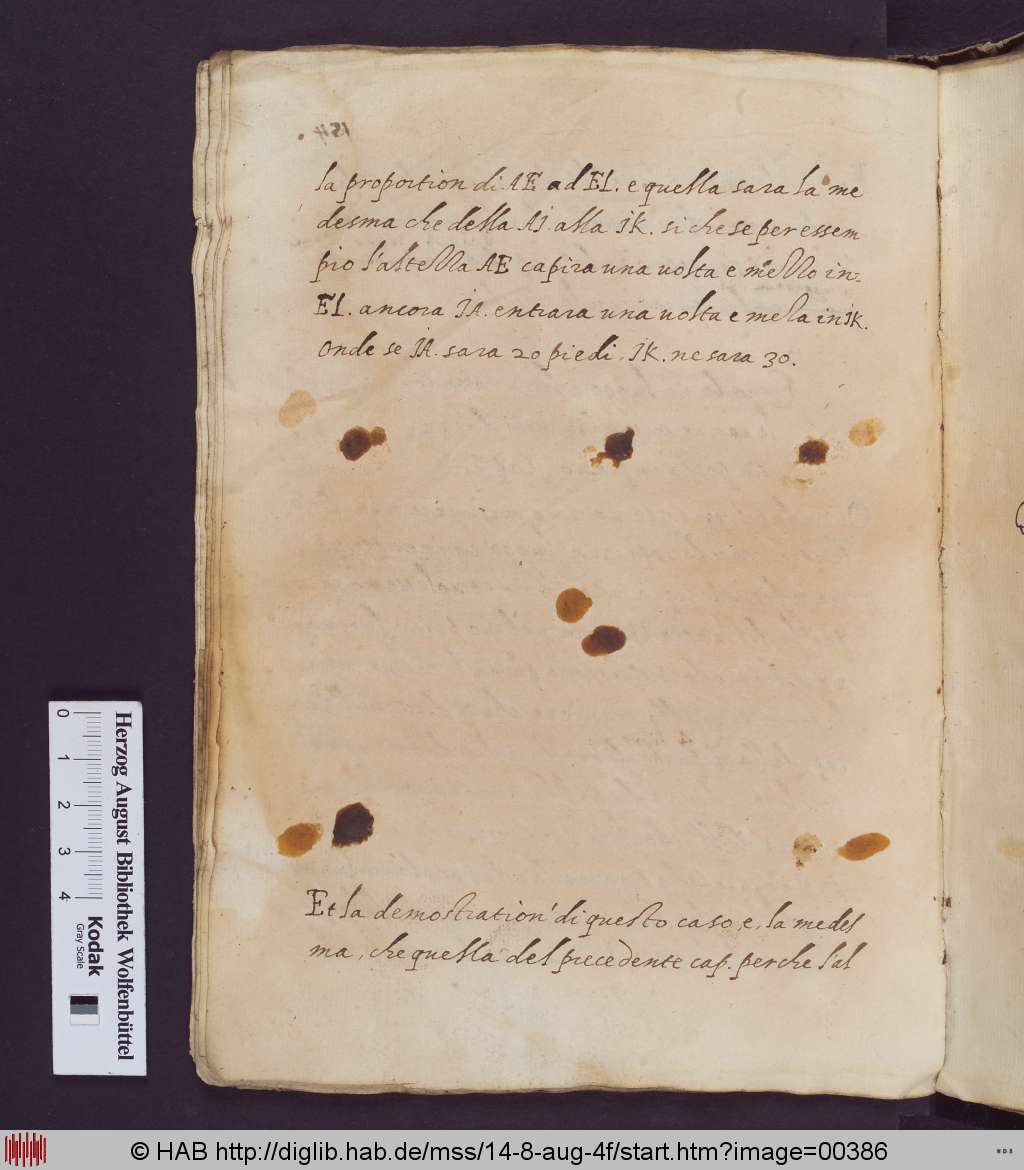 la proportion di AE ad EI. e quella sara la me
desma che della AI alla IK. si che se per essem
pio l'astella AE capira una uolta e mezzo in
EI. ancora IA. entrara una uolta e meza in IK.
Onde se IA. sara 20 piedi. IK. ne sara 30.
Et la demostration' di questo caso, e, la medes
ma, che quella del precedente cap. perche l'al
Herzog August Bibliothek Wolfenbüttel
0 1 2 3 4
Kodak
Gray Scale
© HAB http://diglib.hab.de/mss/14-8-aug-4f/start.htm?image=00386